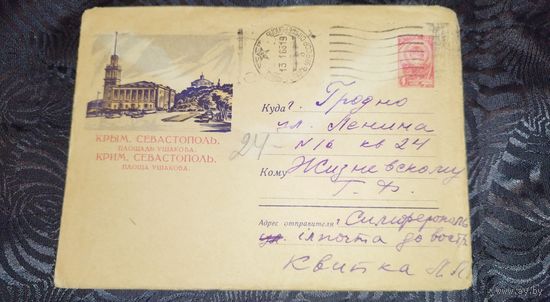 КРЫМ. СЕВАСТОПОЛЬ.
ПЛОЩАДЬ УШАКОВА.
КРИМ. СЕВАСТОПОЛЬ.
ПЛОЩА УШАКОВА.
24-
Куда г. Гродно
ул. Ленина
кв 24
Кому Жизневскому
Г. Ф.
Адрес отправителя: г. Симферополь
ул. почта до вост
Квитка
ay.by